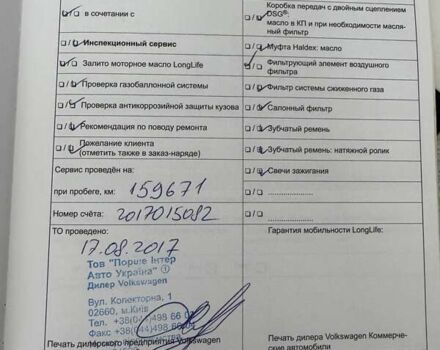 ☐/☐ в сочетании с
☐/☐ Инспекционный сервис
☐/☐ Залито моторное масло LongLife
☐/☐ Проверка газобаллонной системы
☐/☐ Проверка антикоррозийной защиты кузова
☐/☐ Рекомендация по поводу ремонта
☐/☐ Пожелание клиента
(отметить также в заказ-наряде)
Сервис проведён на
при пробеге, км: 159671
Номер счёта: 2017015082
Коробка передач с двойным сцеплением
DSG®:
масло в КП и при необходимости масля-
ный фильтр
☐/☐ Муфта Haldex: масло
☐/☐ Фильтрующий элемент воздушного
фильтра
☐/☐ Фильтр системы сжиженного газа
☐/☐ Салонный фильтр
☐/☐ Зубчатый ремень
☐/☐ Зубчатый ремень: натяжной ролик
☐/☐ Свечи зажигания
☐/☐
☐/☐
ТО проведено:
17.08.2017
Тов "Порше Інтер
Авто Україна" ①
Дилер Volkswagen
Вул. Колекторна, 1
02660, м.Київ
Тел. +38(044)498 66 0
Факс +38(044)498 66
Печать дилерского предприятия Volkswagen
Гарантия мобильности LongLife:
Печать дилера Volkswagen Коммерче-
ские автомобили